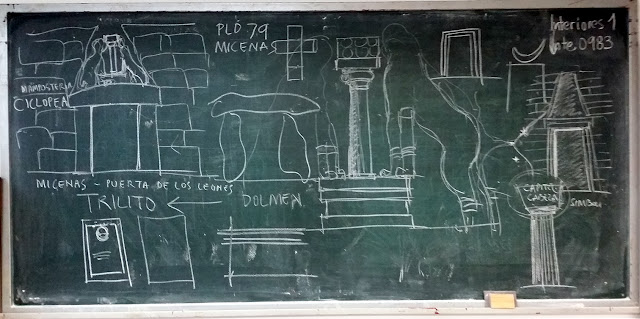 PLÓ 79
MICENAS
Interiores 1
Pte. 0983
MAMPOSTERIA
CICLOPEA
MICENAS - PUERTA DE LOS LEONES
TRILITO
DOLMEN
CAPITEL
CABEZA